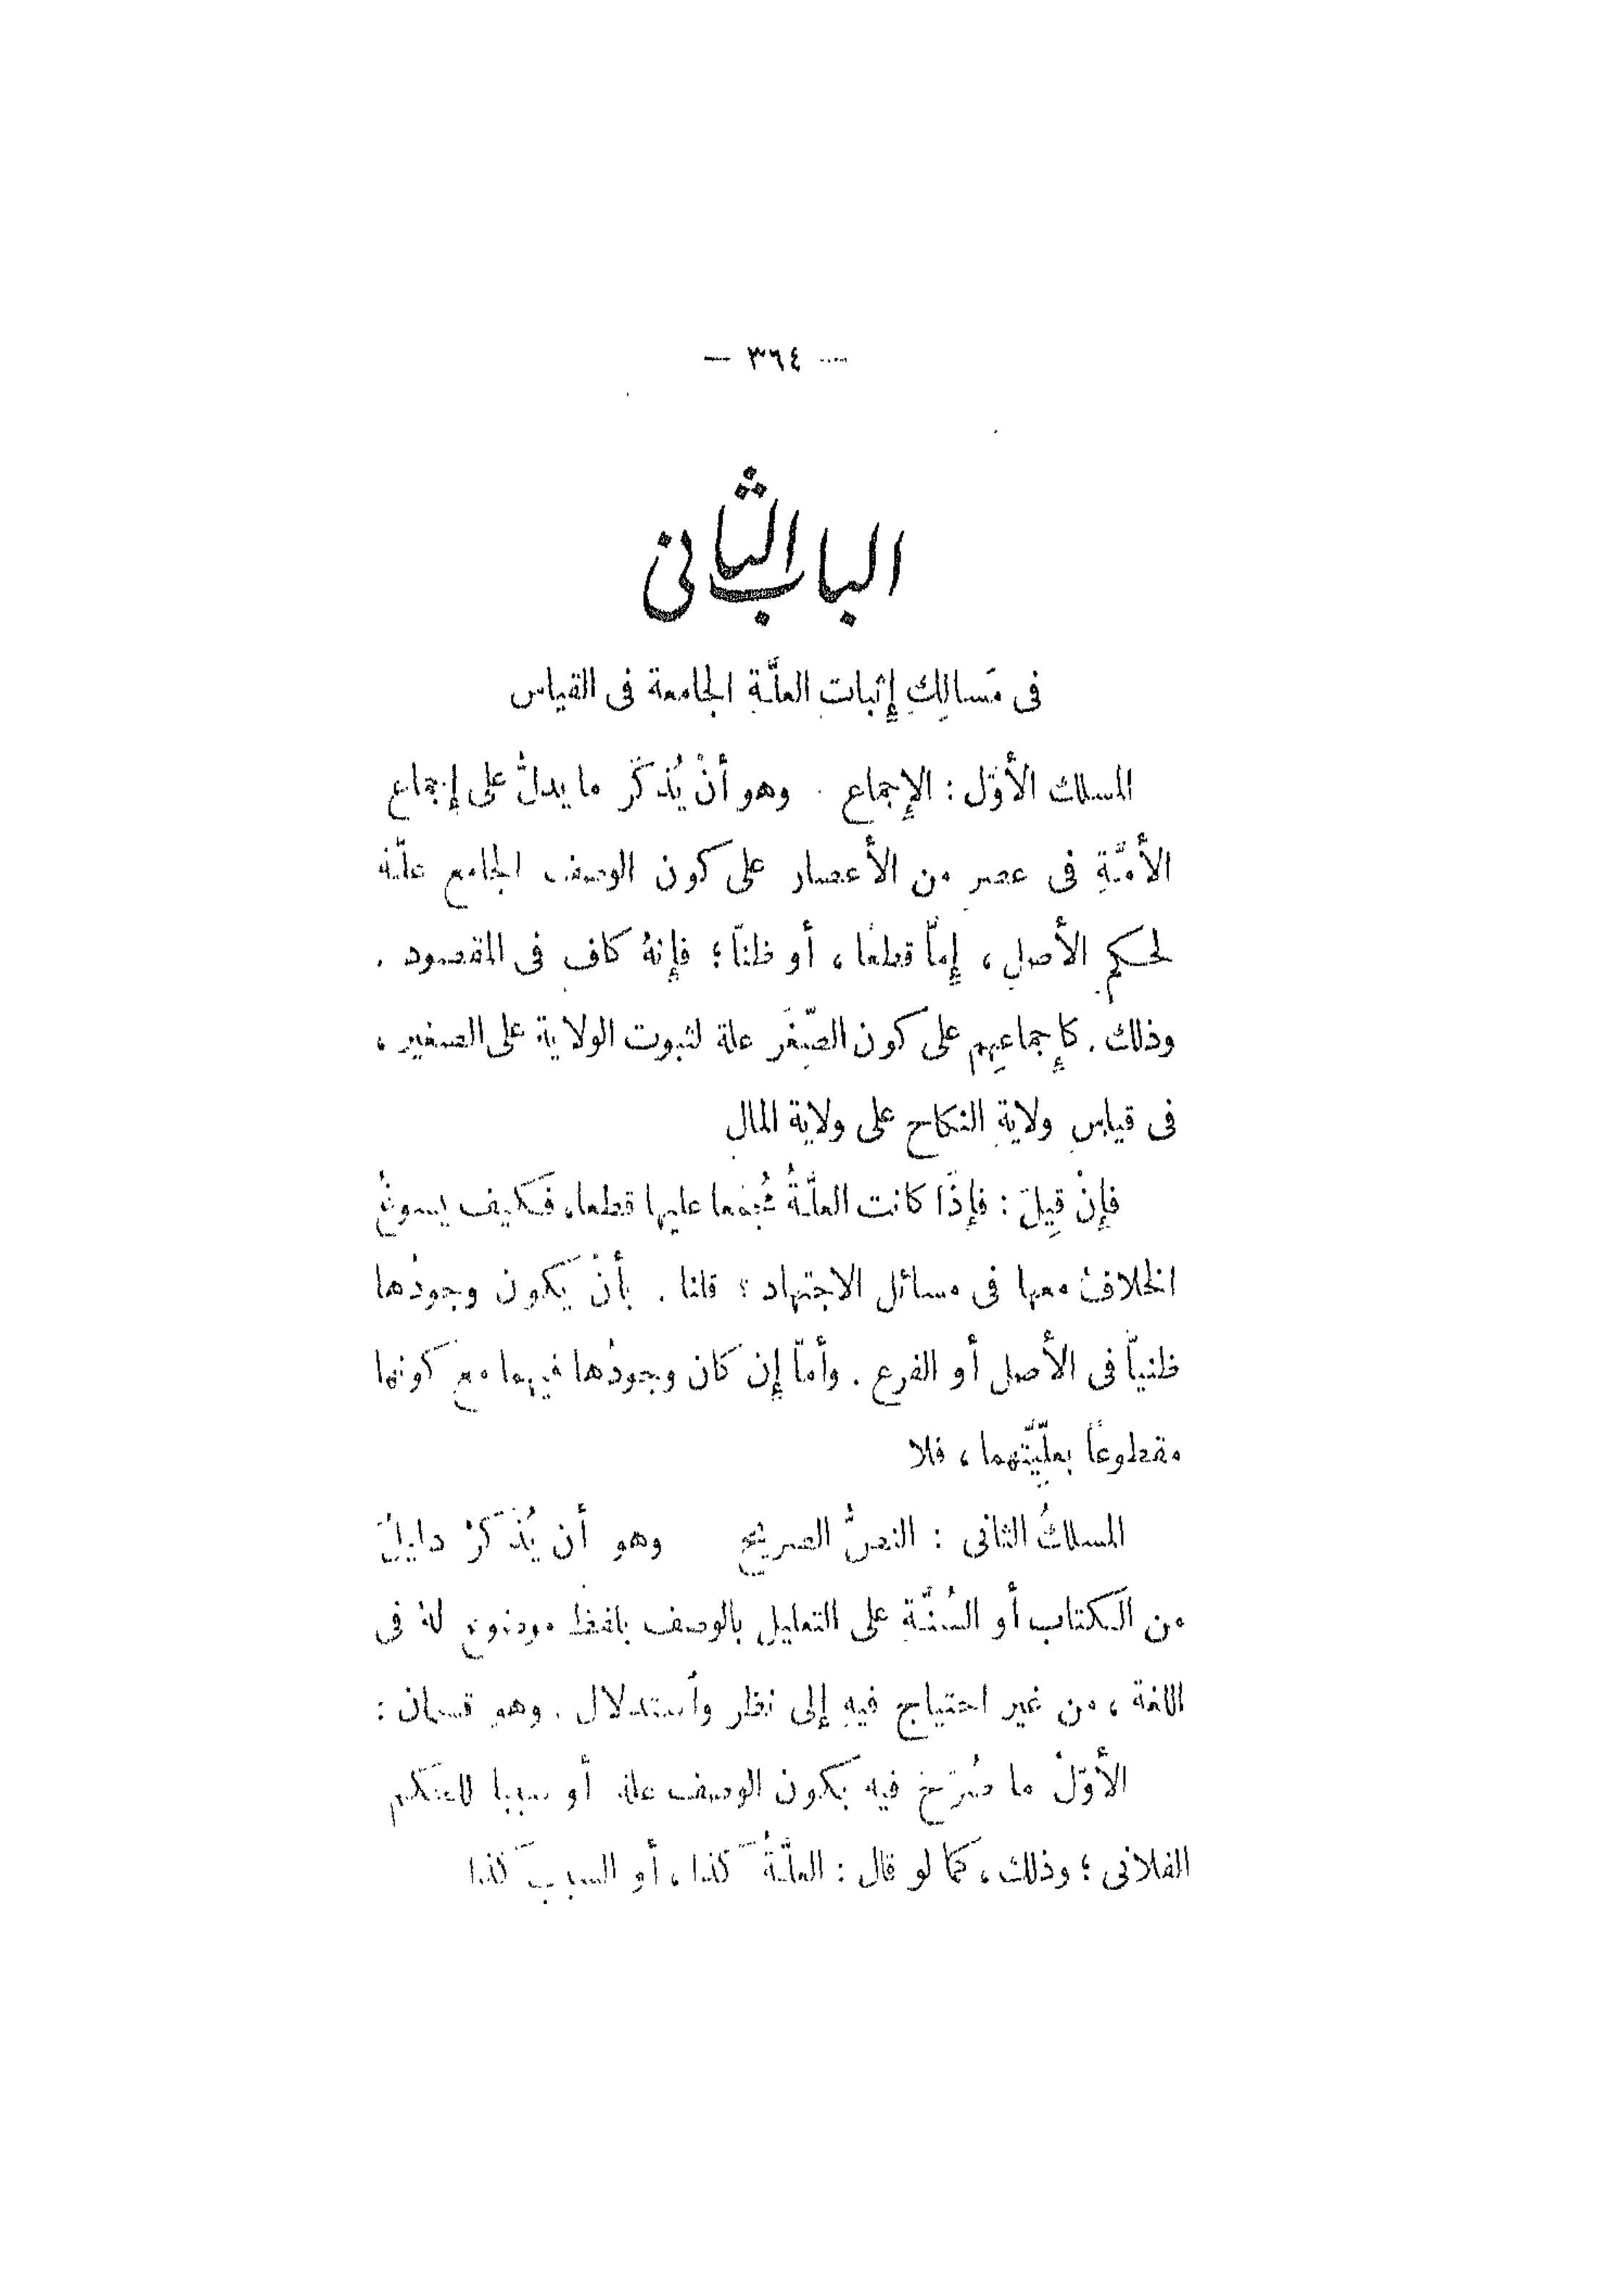 — ٣٦٤ —
الباب الثانى
فى مَسالِكِ إِثبات العلَّةِ الجامعة فى القياس
المسلك الأوّل : الإِجماع . وهو أنْ يُذكَر ما يدلُّ على إِجماع
الأمَّةِ فى عصر من الأعصار على كون الوصف الجامع علّة
لحكمِ الأصلِ ، إِمّا قطعًا ، أو ظنّا ؛ فإِنهُ كاف فى المقصود .
وذلك . كإِجماعِهم على كون الصِّغَر علة لثبوت الولاية على الصغير ،
فى قياسِ ولايةِ النكاح على ولاية المالِ
فإِنْ قِيلَ : فإِذَا كانت العلَّةُ مُجمَعا عليها قطعا، فكيف يسوغُ
الخلافُ معها فى مسائل الاجتهاد ؟ قلنا . بأنْ يَكون وجودُها
ظنيّا فى الأصل أو الفرع . وأمّا إِن كان وجودُها فيهما مع كونها
مقطوعًا بعلِّيَّتهما ، فلا
المسلكُ الثانى : النصُّ الصريحُ وهو أن يُذكَرَ دليلٌ
من الكتاب أو السُّنَّة على التعليل بالوصف بلفظ موضوع لهُ فى
اللغة ، من غير احتياج فيهِ إلى نظر وأستدلال . وهو قسمان :
الأوّلُ ما صُرّحَ فيه بكون الوصف علة أو سببا للحكم
الفلانى ؛ وذلك ، كما لو قال : العلَّةُ كذا ، أو السببَ كذا